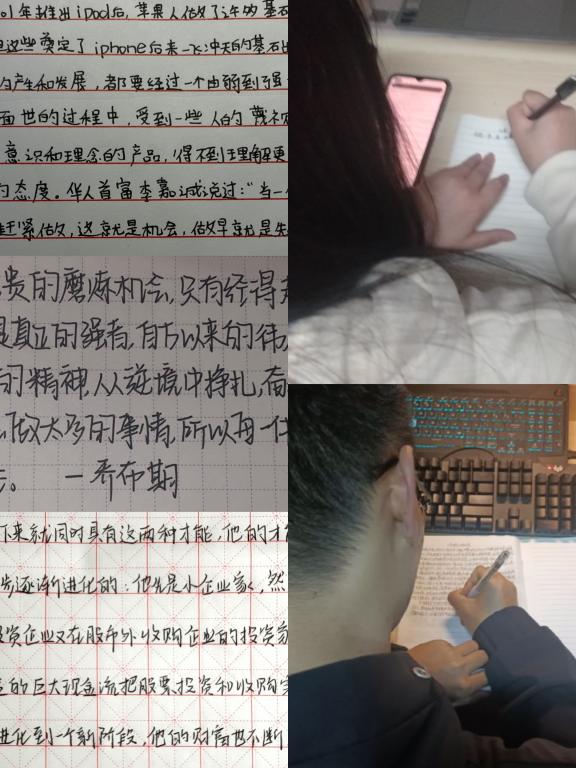 01年推出iPod后,苹果人做了许的基石
这些奠定了iphone后来一飞冲天的基石
的产生和发展,都要经过一个由弱到强
面世的过程中,受到一些人的蔑视
意识和理念的产品,得不到理解更
的态度。华人首富李嘉诚说过:“当一
赶紧做,这就是机会,做早就是先
贵的磨炼机会,只有经得
是真正的强者,自古以来的伟
的精神,从逆境中挣扎,奋
做太多的事情,所以每一件
。 —乔布斯
下来就同时具有这两种才能,他的才能
步逐渐进化的:他先是小企业家,然
投资企业又在股市外收购企业的投资家
的巨大现金流把股票投资和收购
进化到一个新阶段,他的财富也不断